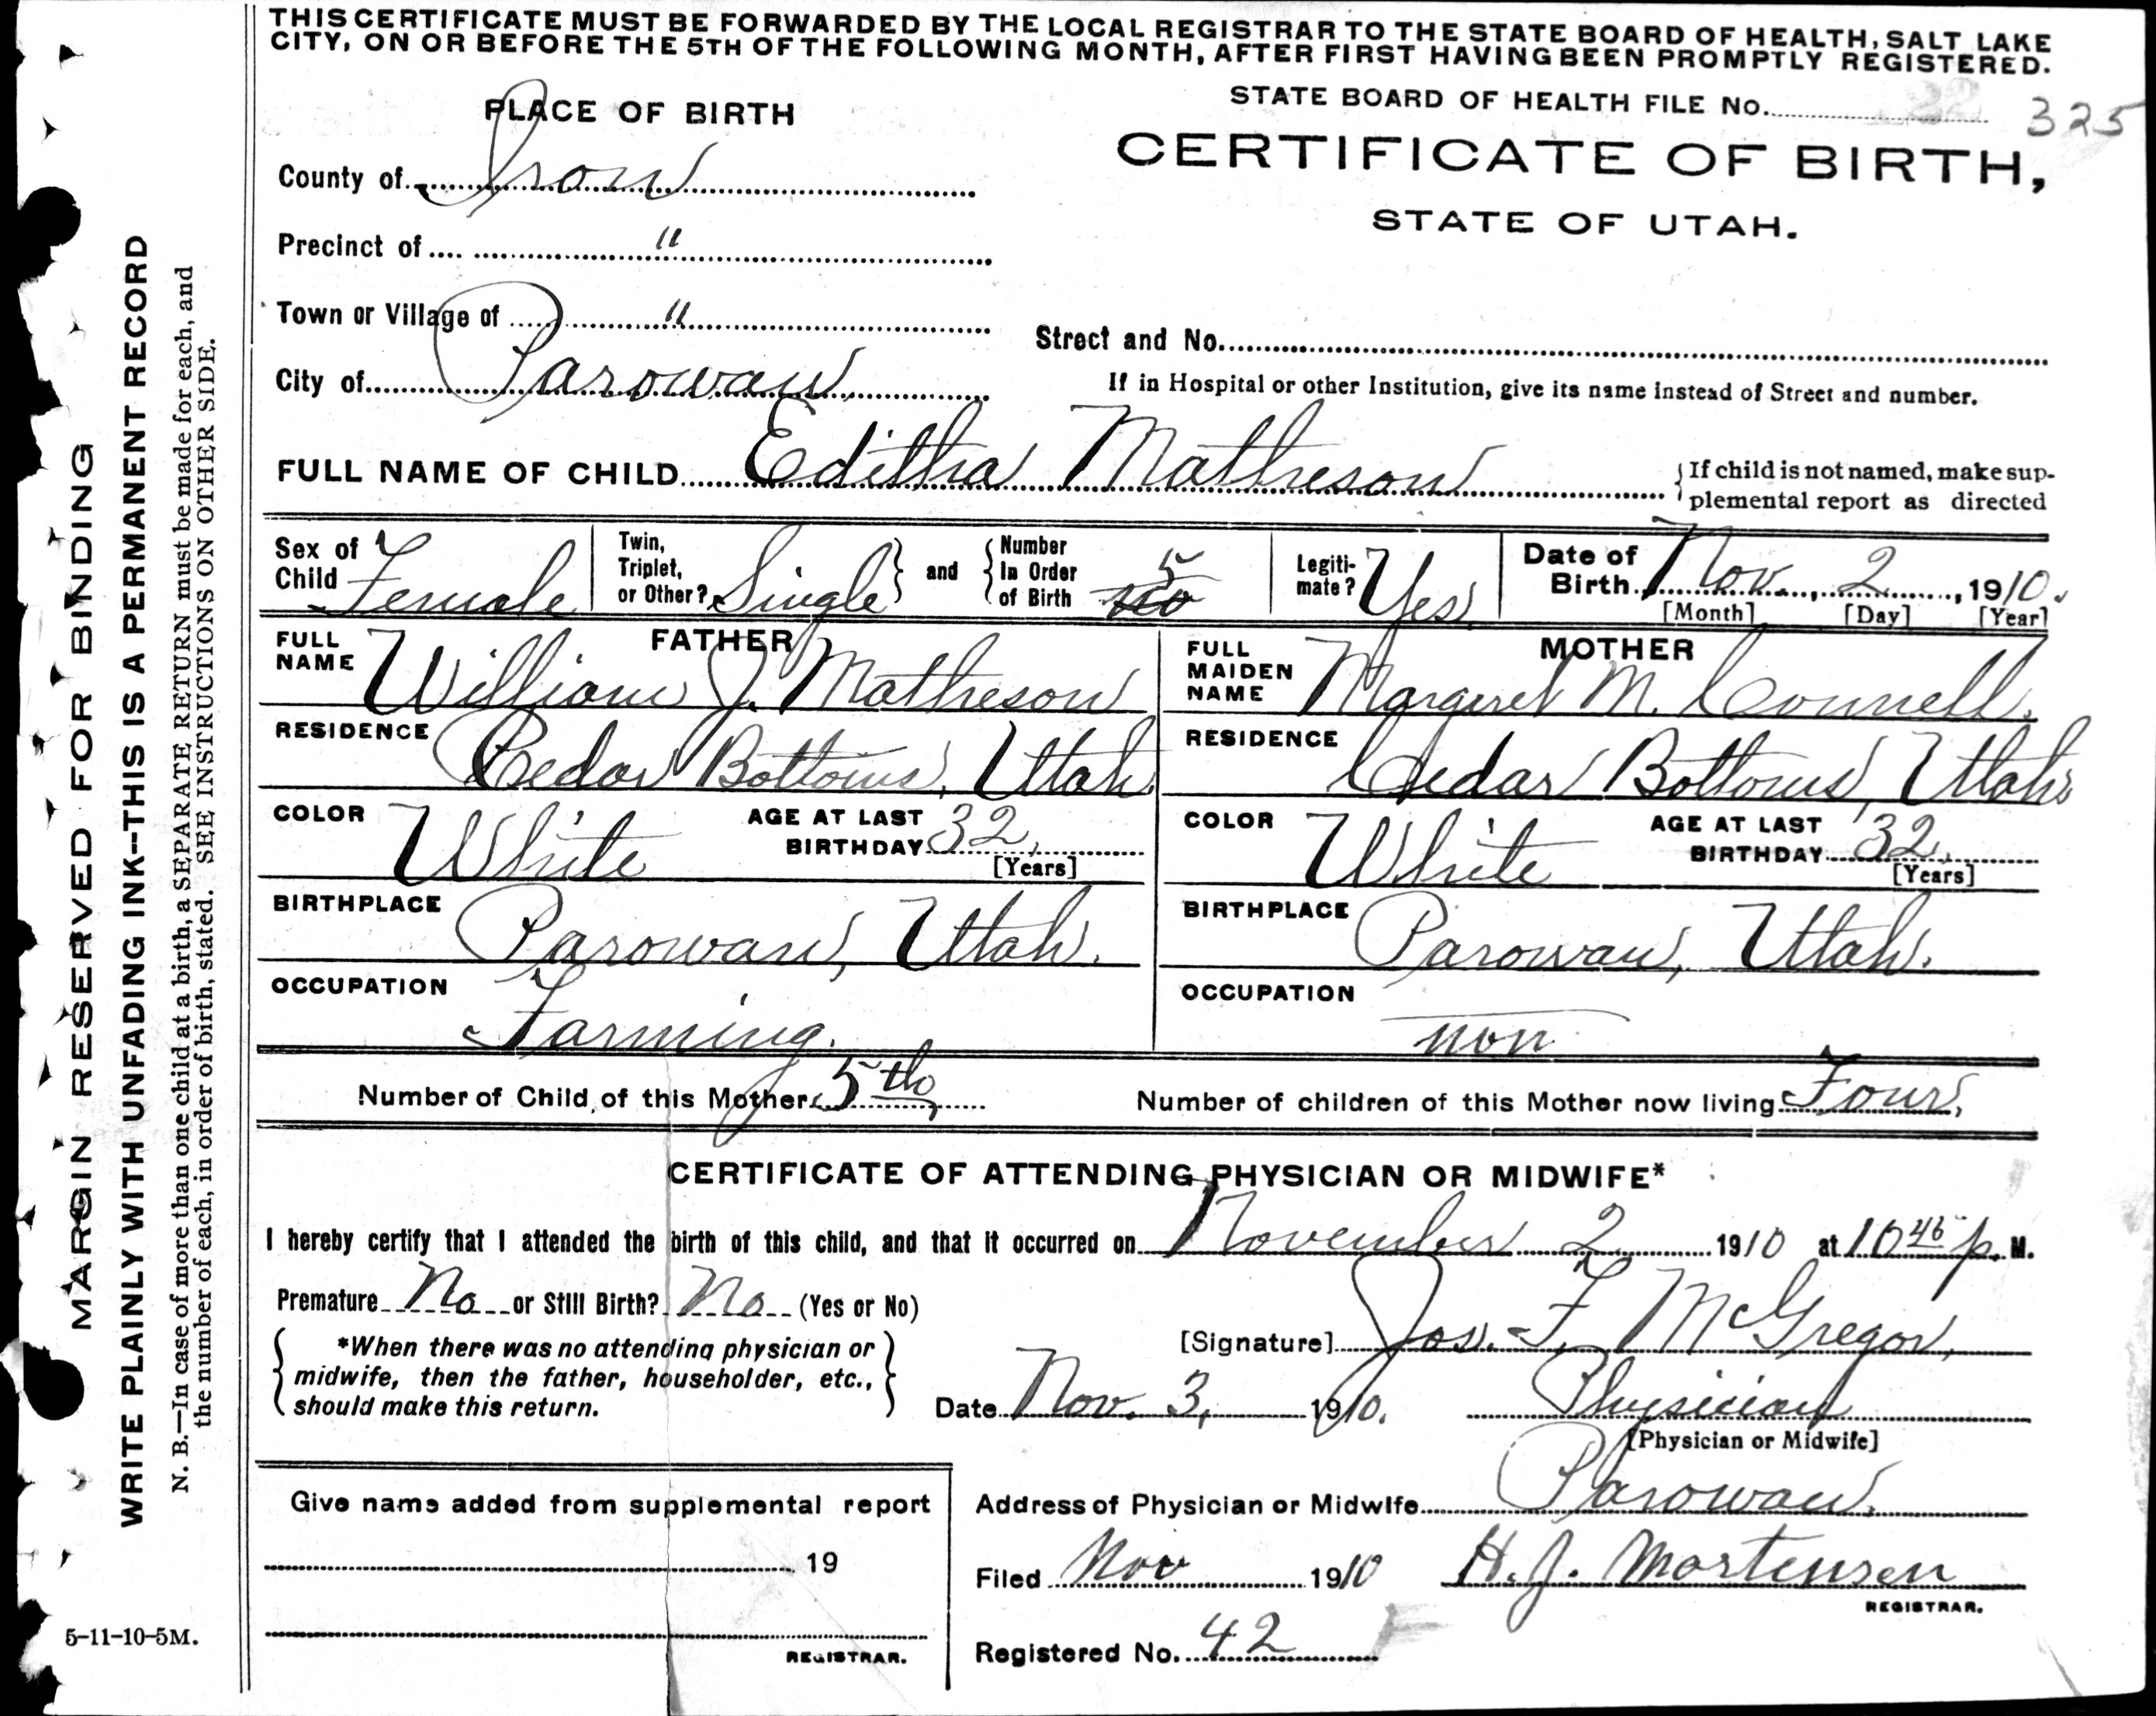 THIS CERTIFICATE MUST BE FORWARDED BY THE LOCAL REGISTRAR TO THE STATE BOARD OF HEALTH, SALT LAKE
CITY, ON OR BEFORE THE 5TH OF THE FOLLOWING MONTH, AFTER FIRST HAVING BEEN PROMPTLY REGISTERED.
STATE BOARD OF HEALTH FILE No. 325
PLACE OF BIRTH
CERTIFICATE OF BIRTH,
STATE OF UTAH.
County of Iron
Precinct of "
Town or Village of "
Street and No.
City of Parowan
If in Hospital or other Institution, give its name instead of Street and number.
FULL NAME OF CHILD Editha Matheson
If child is not named, make sup-
plemental report as directed
Sex of Child Female
Twin, Triplet, or Other? Single and Number In Order of Birth 5
Legiti-mate? Yes
Date of Birth Nov. 2, 1910.
[Month] [Day] [Year]
FATHER
FULL NAME William J. Matheson
RESIDENCE Cedar Bottoms, Utah
COLOR White
AGE AT LAST BIRTHDAY 32,
[Years]
BIRTHPLACE Parowan, Utah.
OCCUPATION Farming.
MOTHER
FULL MAIDEN NAME Margaret M. Connell.
RESIDENCE Cedar Bottoms, Utah
COLOR White
AGE AT LAST BIRTHDAY 32,
[Years]
BIRTHPLACE Parowan, Utah.
OCCUPATION non
Number of Child of this Mother 5th,
Number of children of this Mother now living Four,
CERTIFICATE OF ATTENDING PHYSICIAN OR MIDWIFE*
I hereby certify that I attended the birth of this child, and that it occurred on November 2 1910 at 10 45 p. M.
Premature No or Still Birth? No (Yes or No)
*When there was no attending physician or
midwife, then the father, householder, etc.,
should make this return.
[Signature] Jos. F. McGregor,
Date Nov. 3, 1910. Physician
[Physician or Midwife]
Give name added from supplemental report
19
REGISTRAR.
Address of Physician or Midwife Parowan,
Filed Nov 1910 H. J. Mortensen
REGISTRAR.
Registered No. 42
MARGIN RESERVED FOR BINDING
WRITE PLAINLY WITH UNFADING INK--THIS IS A PERMANENT RECORD
N. B.—In case of more than one child at a birth, a SEPARATE RETURN must be made for each, and
the number of each, in order of birth, stated. SEE INSTRUCTIONS ON OTHER SIDE.
5-11-10-5M.